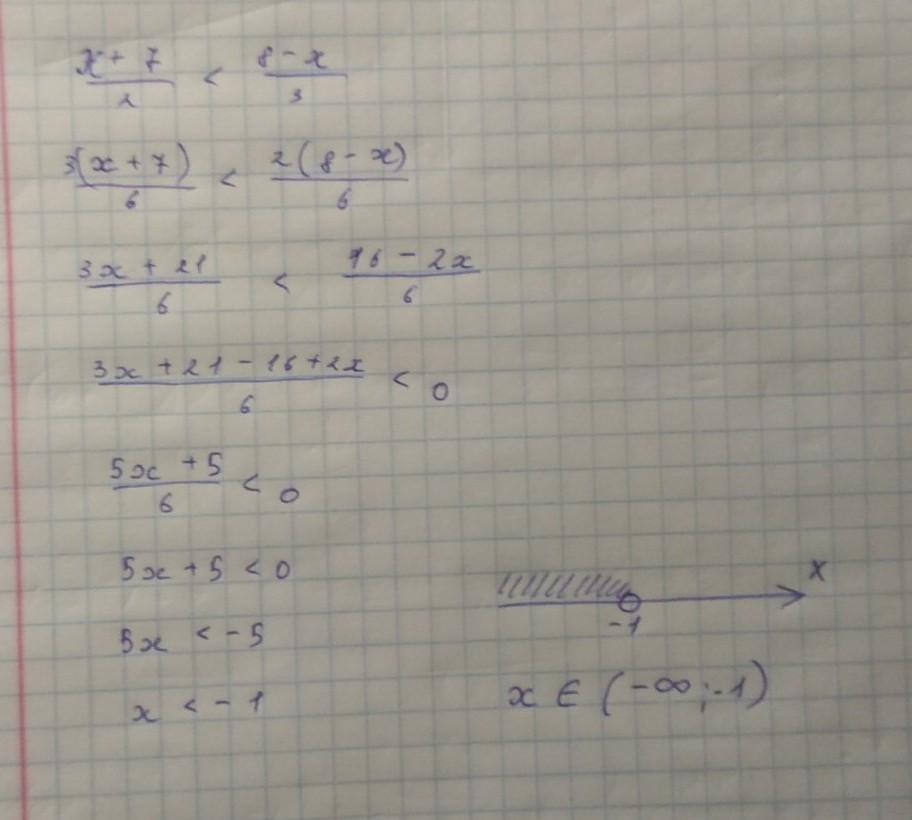 x + 7 / 2 < 8 - x / 3
3(x + 7) / 6 < 2(8 - x) / 6
3x + 21 / 6 < 16 - 2x / 6
3x + 21 - 16 + 2x / 6 < 0
5x + 5 / 6 < 0
5x + 5 < 0
5x < -5
x < -1
x
-1
x ∈ (-∞; -1)